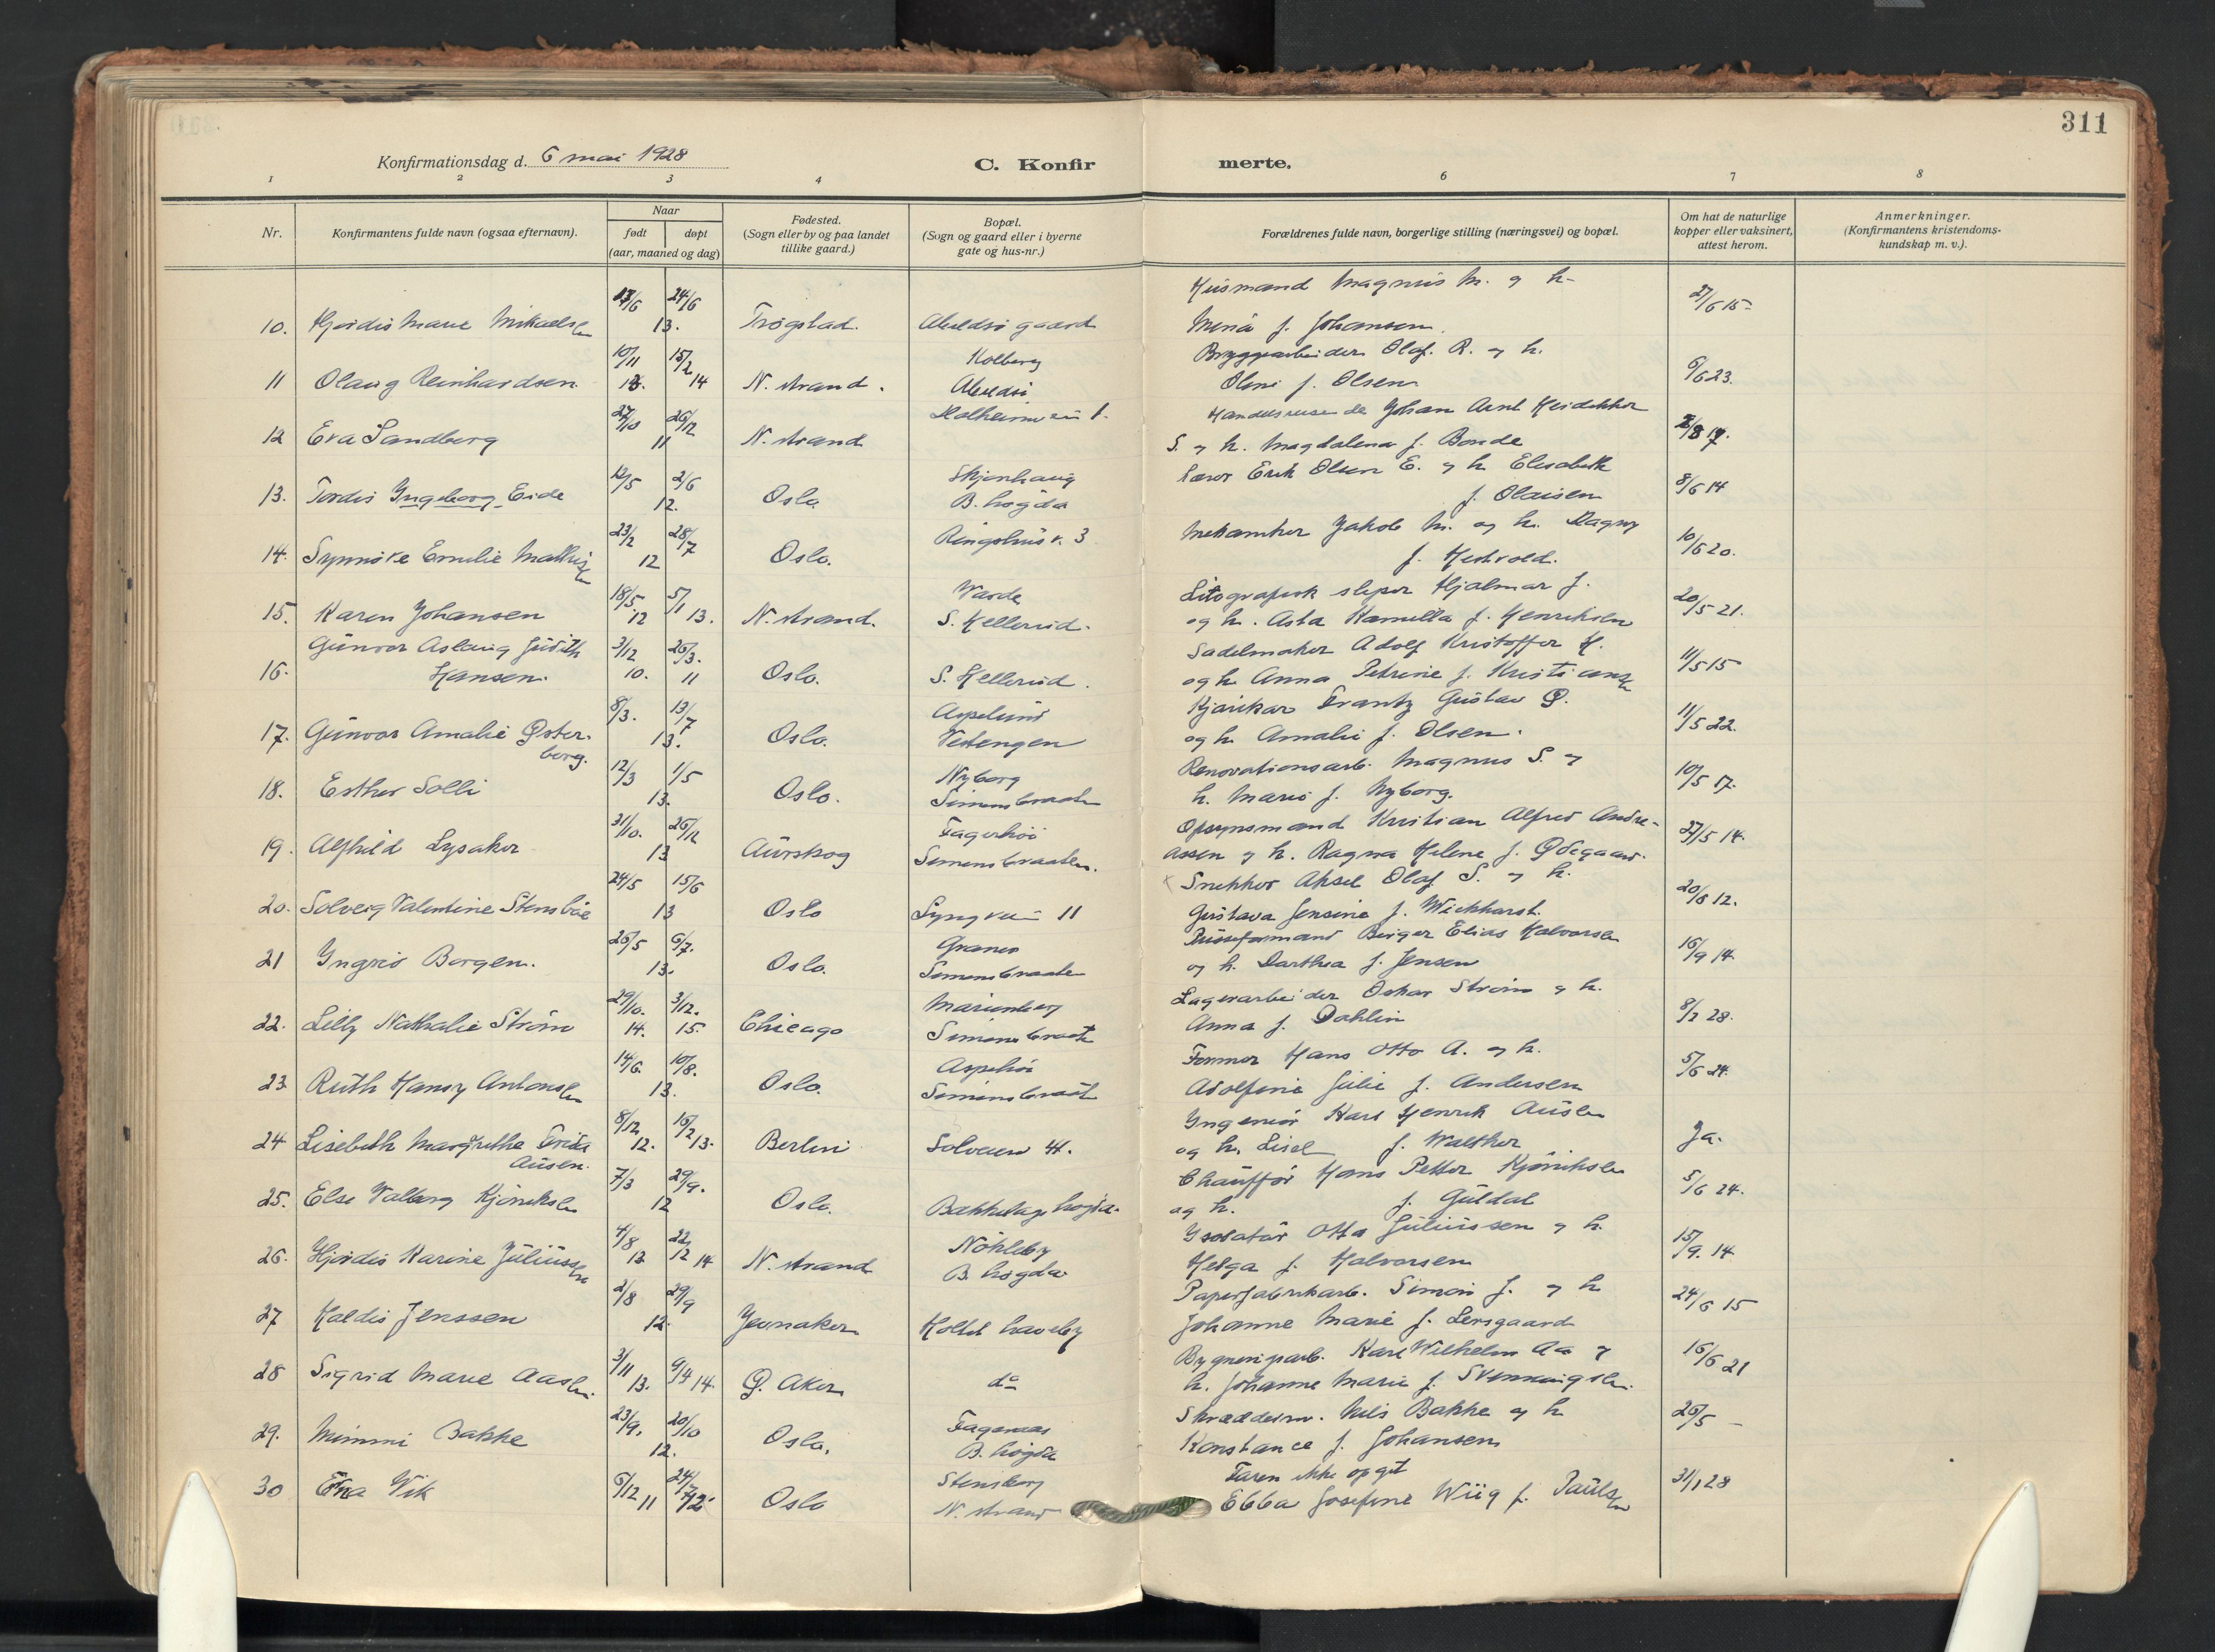 311
Konfirmationsdag d. 6 mai 1928
C. Konfir merte.
1 2 3 4 6 7 8
Nr.
Konfirmantens fulde navn (ogsaa efternavn).
Naar
født døpt
(aar, maaned og dag)
Fødested.
(Sogn eller by og paa landet
tillike gaard.)
Bopæl.
(Sogn og gaard eller i byerne
gate og hus-nr.)
Forældrenes fulde navn, borgerlige stilling (næringsvei) og bopæl.
Om hat de naturlige
kopper eller vaksinert,
attest herom.
Anmerkninger.
(Konfirmantens kristendoms-
kundskap m. v.).
24/6 Husmand Magnus M. og h. 27/6 15
10. Hjørdis Marie Mikaelsen 13. Trøgstad. Abildsø gaard Mina f. Johansen.
10/11 15/2 Kolberg Bryggearbeider Olaf. R. og h.
11 Olaug Reinhardsen 14 N. strand. Abildsø Oline f. Olsen 6/6 23.
27/10 26/12 Handelsreisende Johan Arnt
12 Eva Sandberg 11 N. strand S. og h. Magdalena f. Bonde
12/5 2/6 Skjønhaug Erik Olsen E. og h. Elisabeth
13. Tordis Ingeborg Eide 12. Oslo B. høgda f. Olaisen 8/6 14
23/2 28/7 Ringshusv. 3 Mekaniker Jakob M. og h. Dagny
14. Synnøve Emilie Mathisen 12 Oslo. f. Hestvold. 10/6 20.
18/5 5/1 Varde Litografisk sliper Hjalmar J.
15. Karen Johansen 12 13. N. strand. S. Hellerud. og h. Asta Kamilla f. Henriksen 20/5 21.
Gunvor Aslaug Judith 3/12 26/3. Sadelmaker Adolf Kristoffer H.
16. Hansen. 10. 11 Oslo. S. Hellerud. og h. Anna Petrine f. Kristiansen 11/5 15
8/3. 13/7 Aspelund Frantz Gustav Ø.
17. Gunvor Amalie Øster- 13. Oslo. Vestengen og h. Amalie f. Olsen. 11/5 22.
borg.
12/3 1/5 Nyborg Renovationsarb. Magnus S. og
18. Esther Solli 13. Oslo. Simensbraaten h. Marie f. Nyborg. 10/5 17.
31/10. 26/12 Fagerhøi Opsynsmand Kristian Alfred Andre-
19. Alfhild Lysaker 13 Aurskog Simensbraaten. assen og h. Ragna Helene f. Ødegaard. 27/5 14.
24/5 15/6 Snekker Aksel Olaf S. og h.
20. Solveig Valentine Stensbøe 13 Oslo Lyngveien 11 Gustava Jensine f. Wickharst. 20/8 12.
26/5 6/7. Granes Pusseformand Berger Elias Halvorsen
21 Ingrid Borgen. 13. Oslo. Simensbraaten og h. Darthea f. Jensen 16/9 14.
29/10. 3/12. Marienberg Lagerarbeider Oskar Strøm og h.
22. Lilly Nathalie Strøm 14. 15. Chicago Simensbraaten Anna f. Dahlin 8/2 28.
14/6. 10/8. Aspehøi Former Hans Otto A. og h.
23. Ruth Hansy Antonsen 13. Oslo. Simensbraaten Adolfine Julie f. Andersen 5/6 24.
8/12 16/2 Ingeniør Karl Henrik Ausen
24 Lisebeth Margrethe Frida 12. 13. Berlin Solveien 41. og h. Lisel f. Walther Ja.
Ausen.
7/3 29/9. Chauffør Hans Petter Kjøniksen
25. Else Valborg Kjøniksen 12 Oslo. Bakkelagshøgda. og h. f. Guldal 5/6 24.
4/8 22/12 Nøkleby Isolatør Otto Juliussen og h.
26. Hjørdis Karine Juliussen 13 14 N. strand B. høgda Helga f. Halvorsen 15/9. 14.
2/8 29/9 Papirfabrikarb. Simon J. og h
27 Haldis Jenssen 12. Jevnaker Holtet haveby Johanne Marie f. Lersgaard 24/6 15
3/11 9/4 Bygningsarb. Karl Wilhelm Aa og
28 Sigrid Marie Aasen. 13. 14. Ø. Aker do h. Johanne Marie f. Svenningsen. 16/6 21
23/9. 20/10 Fagernes Skræddern. Nils Bakke og h
29. Mimmi Bakke 12. Oslo. B. høgda Konstance f. Johansen 26/5 –
6/12 24/2 Stensberg Faren ikke opgit
30 Wik 11 12 Oslo N. strand Ebba Josefine Wiig f. Paulsen 31/1 28